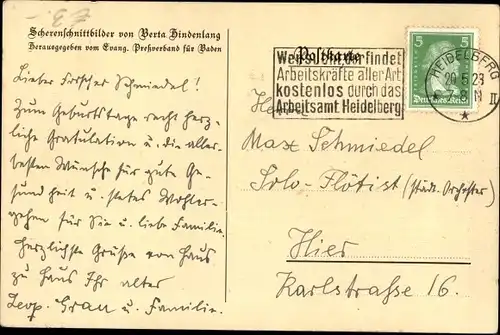 Scherenschnittbilder von Berta Hindenlang
Herausgegeben vom Evang. Preßverband für Baden
Lieber Schmiedel!
Zum Geburtstage recht herz-
liche Gratulation u. die aller-
besten Wünsche für gute Ge-
sundheit u. stetes Wohler-
gehen für Sie u. liebe Familie.
Herzlichste Grüße von Haus
zu Haus Ihr alter
Leop. Grau u. Familie.
Postkarte
Wer sucht, der findet
Arbeitskräfte aller Art
kostenlos durch das
Arbeitsamt Heidelberg
5 5
Deutsches Reich
HEIDELBERG
20.5.28
Herrn
Max Schmiedel
Solo-Flötist (Städt. Orchester)
Hier
Karlstraße 16.